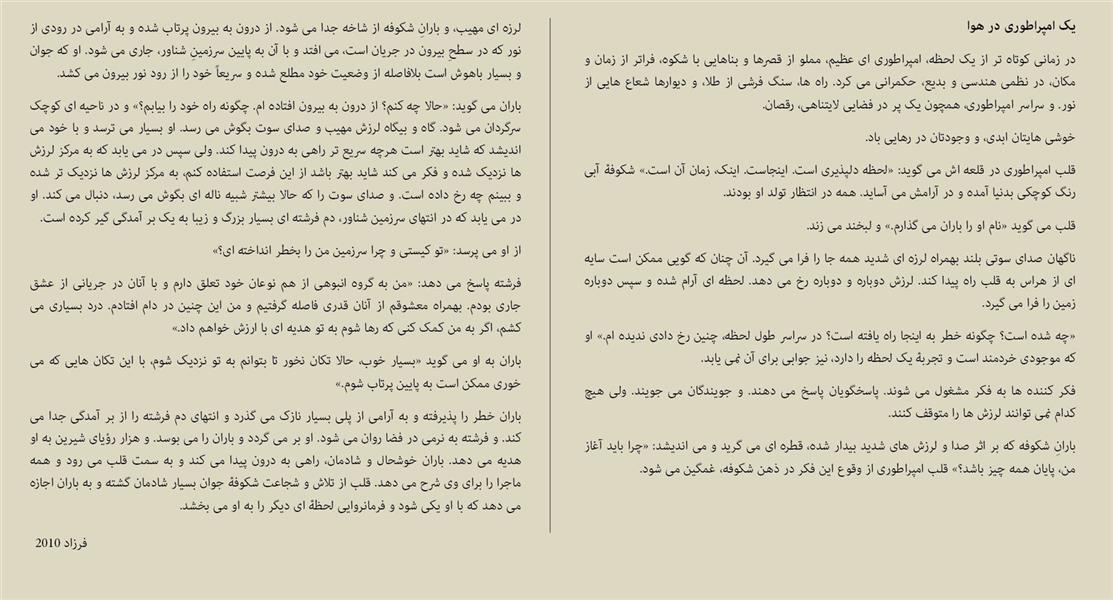 یک امپراطوری در هوا
در زمانی کوتاه تر از یک لحظه، امپراطوری ای عظیم، مملو از قصرها و بناهایی با شکوه، فراتر از زمان و
مکان، در نظمی هندسی و بدیع، حکمرانی می کرد. راه ها، سنگ فرشی از طلا، و دیوارها شعاع هایی از
نور. و سراسر امپراطوری، همچون یک پر در فضایی لایتناهی، رقصان.
خوشی هایتان ابدی، و وجودتان در رهایی باد.
قلب امپراطوری در قلعه اش می گوید: «لحظه دلپذیری است. اینجاست. اینک، زمان آن است.» شکوفهٔ آبی
رنگ کوچکی بدنیا آمده و در آرامش می آساید. همه در انتظار تولد او بودند.
قلب می گوید «نام او را باران می گذارم.» و لبخند می زند.
ناگهان صدای سوتی بلند بهمراه لرزه ای شدید همه جا را فرا می گیرد. آن چنان که گویی ممکن است سایه
ای از هراس به قلب راه پیدا کند. لرزش دوباره و دوباره رخ می دهد. لحظه ای آرام شده و سپس دوباره
زمین را فرا می گیرد.
«چه شده است؟ چگونه خطر به اینجا راه یافته است؟ در سراسر طول لحظه، چنین رخ دادی ندیده ام.» او
که موجودی خردمند است و تجربهٔ یک لحظه را دارد، نیز جوابی برای آن نمی یابد.
فکر کننده ها به فکر مشغول می شوند. پاسخگویان پاسخ می دهند. و جویندگان می جویند. ولی هیچ
کدام نمی توانند لرزش ها را متوقف کنند.
بارانِ شکوفه که بر اثر صدا و لرزش های شدید بیدار شده، قطره ای می گرید و می اندیشد: «چرا باید آغاز
من، پایان همه چیز باشد؟» قلب امپراطوری از وقوع این فکر در ذهن شکوفه، غمگین می شود.
لرزه ای مهیب، و بارانِ شکوفه از شاخه جدا می شود. از درون به بیرون پرتاب شده و به آرامی در رودی از
نور که در سطحِ بیرون در جریان است، می افتد و با آن به پایین سرزمینِ شناور، جاری می شود. او که جوان
و بسیار باهوش است بلافاصله از وضعیت خود مطلع شده و سریعاً خود را از رود نور بیرون می کشد.
باران می گوید: «حالا چه کنم؟ از درون به بیرون افتاده ام. چگونه راه خود را بیابم؟» و در ناحیه ای کوچک
سرگردان می شود. گاه و بیگاه لرزش مهیب و صدای سوت بگوش می رسد. او بسیار می ترسد و با خود می
اندیشد که شاید بهتر است هرچه سریع تر راهی به درون پیدا کند. ولی سپس در می یابد که به مرکز لرزش
ها نزدیک شده و فکر می کند شاید بهتر باشد از این فرصت استفاده کنم، به مرکز لرزش ها نزدیک تر شده
و ببینم چه رخ داده است. و صدای سوت را که حالا بیشتر شبیه ناله ای بگوش می رسد، دنبال می کند. او
در می یابد که در انتهای سرزمین شناور، دم فرشته ای بسیار بزرگ و زیبا به یک بر آمدگی گیر کرده است.
از او می پرسد: «تو کیستی و چرا سرزمین من را بخطر انداخته ای؟»
فرشته پاسخ می دهد: «من به گروه انبوهی از هم نوعان خود تعلق دارم و با آنان در جریانی از عشق
جاری بودم. بهمراه معشوقم از آنان قدری فاصله گرفتیم و من این چنین در دام افتادم. درد بسیاری می
کشم، اگر به من کمک کنی که رها شوم به تو هدیه ای با ارزش خواهم داد.»
باران به او می گوید «بسیار خوب، حالا تکان نخور تا بتوانم به تو نزدیک شوم، با این تکان هایی که می
خوری ممکن است به پایین پرتاب شوم.»
باران خطر را پذیرفته و به آرامی از پلی بسیار نازک می گذرد و انتهای دم فرشته را از بر آمدگی جدا می
کند. و فرشته به نرمی در فضا روان می شود. او بر می گردد و باران را می بوسد. و هزار رؤیای شیرین به او
هدیه می دهد. باران خوشحال و شادمان، راهی به درون پیدا می کند و به سمت قلب می رود و همه
ماجرا را برای وی شرح می دهد. قلب از تلاش و شجاعت شکوفهٔ جوان بسیار شادمان گشته و به باران اجازه
می دهد که با او یکی شود و فرمانروایی لحظهٔ ای دیگر را به او می بخشد.
فرزاد 2010